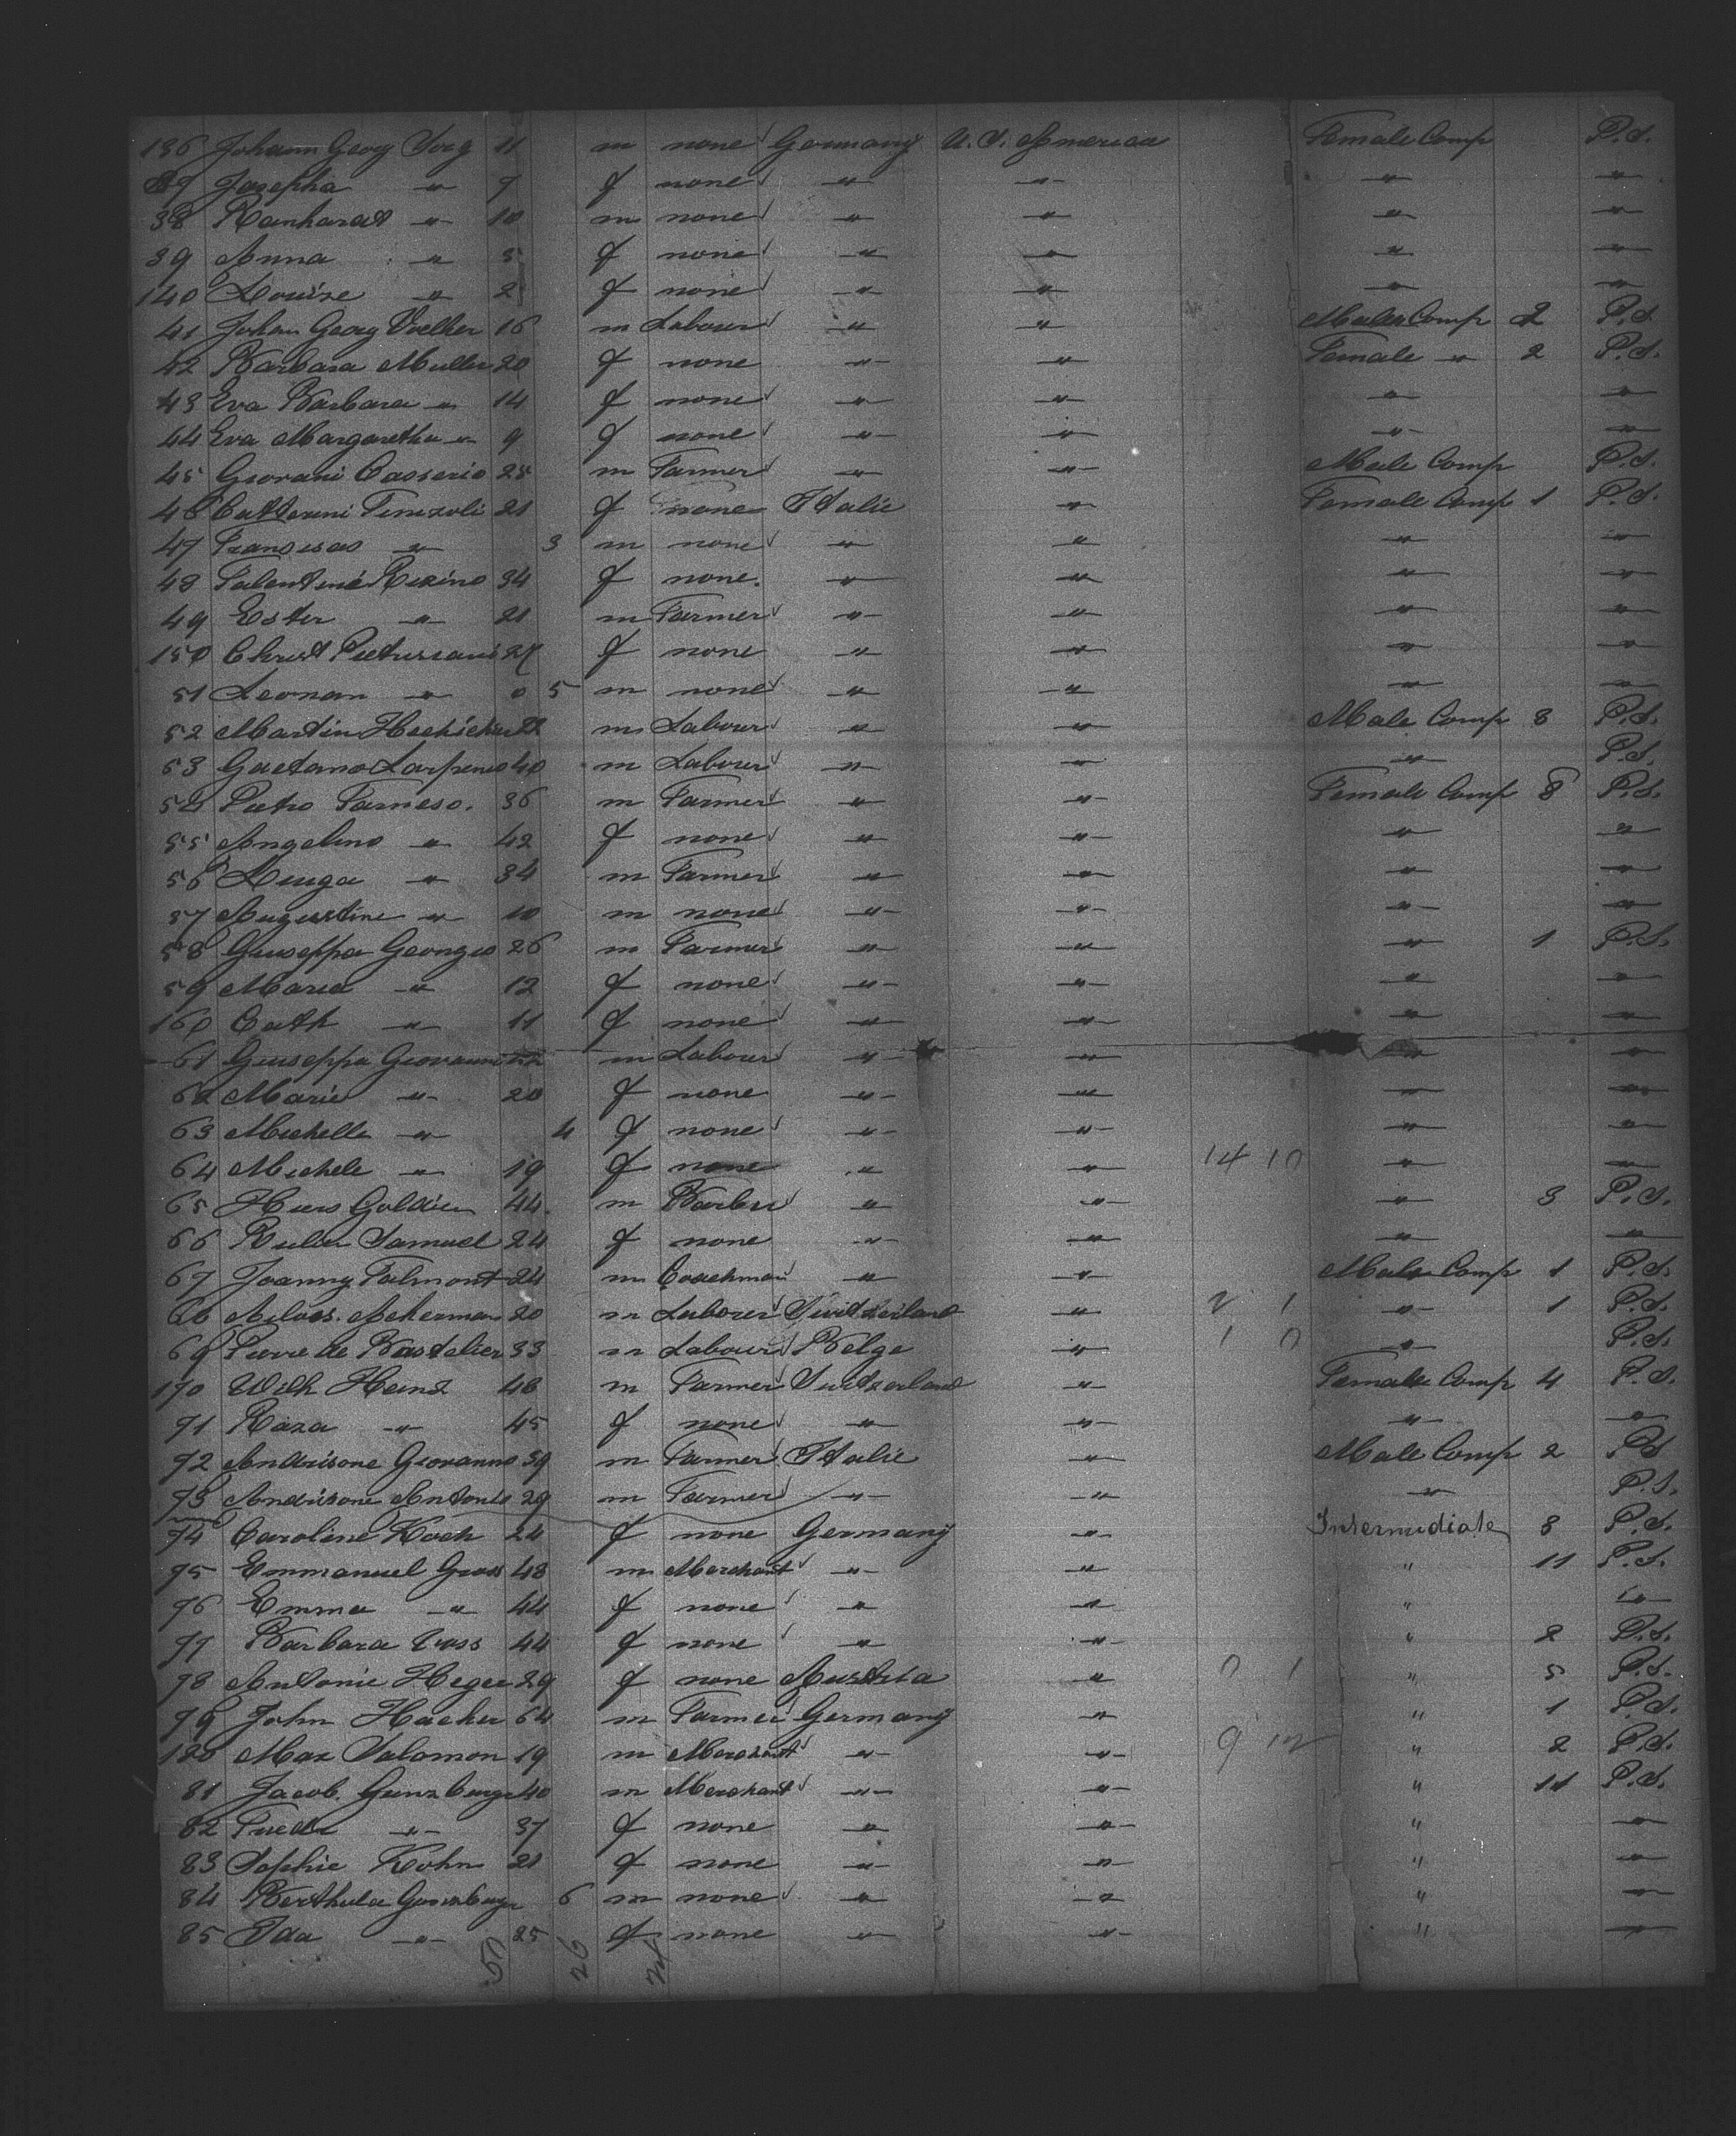 136 Johann Georg Sorg 11 m none Germany U. S. America Female Comp P.S.
37 Josepha " 7 f none " " " "
38 Reinhardt " 10 m none " " " "
39 Anna " 5 f none " " " "
140 Louise " 2 f none " " " "
41 Johan Georg Voelker 16 m Labour " " Male Comp 2 P.S.
42 Barbara Muller 20 f none " " Female " 2 P.S.
43 Eva Barbara " 14 f none " " " "
44 Eva Margaretha " 9 f none " " " "
45 Giovani Casserio 25 m Farmer " " Male Comp P.S.
46 Catterini 21 f none Italie " Female Comp 1 P.S.
47 " 3 m none " " " "
48 34 f none. " " " "
49 Ester " 21 m Farmer " " " "
150 Christ f none " " " "
51 Leonan " 0 5 m none " " " "
52 Martin 22 m Labour " " Male Comp 8 P.S.
53 Gaetano 40 m Labour " " " P.S.
54 Pietro Farneso. 36 m Farmer " " Female Comp 8 P.S.
55 Angelino " 42 f none " " " "
56 Luiga " 34 m Farmer " " " "
57 Augustine " 10 m none " " " "
58 Giuseppa Georgio 26 m Farmer " " " 1 P.S.
59 Maria " 12 f none " " " "
160 Cath " 11 f none " " " "
61 Giuseppa Giovanni 22 m Labour " " " "
62 Marie " 20 f none " " " "
63 Michelle " 4 f none " " " "
64 Michele " 19 f none " " 14 10 " "
65 Goldien 44 m Barber " " " 3 P.S.
66 Samuel 24 f none " " " "
67 Joanny Falmont 24 m Coachman " " Male Comp 1 P.S.
68 Ackerman 20 m Labour Switzerland " 2 1 " 1 P.S.
69 Pierre de Bastelier 33 m Labour Belge " 1 0 " P.S.
170 Wilh Heinz 48 m Farmer Switzerland " Female Comp 4 P.S.
71 Roza " 45 f none " " " "
72 Andrisone Giovanno 39 m Farmer Italie " Male Comp 2 P.S.
73 Andrisone Antonio 29 m Farmer " " " P.S.
74 Caroline Koch 24 f none Germany " Intermediate 8 P.S.
75 Emmanuel Gross 48 m Merchant " " " 11 P.S.
76 Emma " 44 f none " " " "
77 Barbara Voss 44 f none " " " 2 P.S.
78 Antonie Heger 29 f none Austria " 0 1 " 5 P.S.
79 John Hacker 64 m Farmer Germany " " 1 P.S.
180 Max Salomon 19 m Merchant " " 9 12 " 2 P.S.
81 Jacob. Gunzburger 40 m Merchant " " " 11 P.S.
82 " 37 f none " " " "
83 Sophie Kohn 21 f none " " " "
84 Berthula Gunzburger 6 m none " " " "
85 Ida " 25 f none " " " "
50 26 24